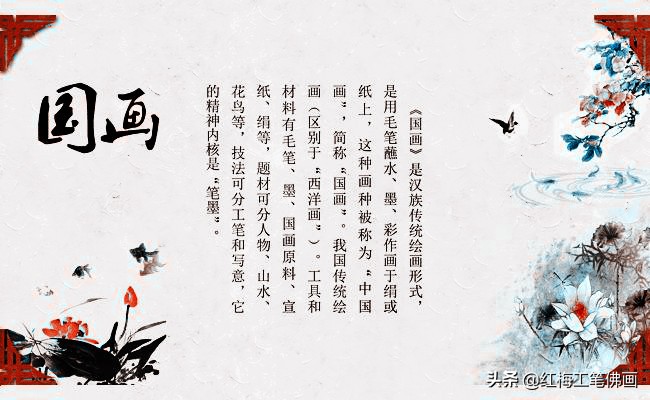 国画
《国画》是汉族传统绘画形式，
是用毛笔蘸水、墨、彩作画于绢或
纸上，这种画种被称为“中国
画”，简称“国画”。我国传统绘
画（区别于“西洋画”）。工具和
材料有毛笔、墨、国画原料、宣
纸、绢等，题材可分人物、山水、
花鸟等，技法可分工笔和写意，它
的精神内核是“笔墨”。
头条 @红梅工笔佛画